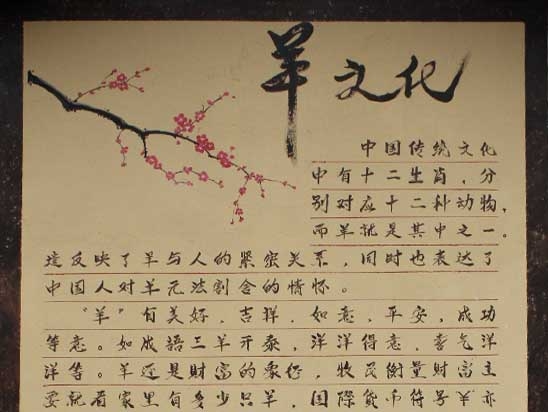 羊文化
中国传统文化
中有十二生肖，分
别对应十二种动物，
而羊就是其中之一。
这反映了羊与人的紧密关系，同时也表达了
中国人对羊无法割舍的情怀。
“羊”有美好，吉祥，如意，平安，成功
等意。如成語三羊开泰，洋洋得意，喜气洋
洋等。羊还是财富的象征，牧民衡量财富主
要就看家里有多少只羊，国際货币符号¥亦